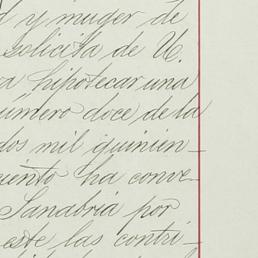 y muger de
solicita de U.
hipotecar una
número doce de la
dos mil quinien-
ciento ha conve-
Sanabria por
este las contri-